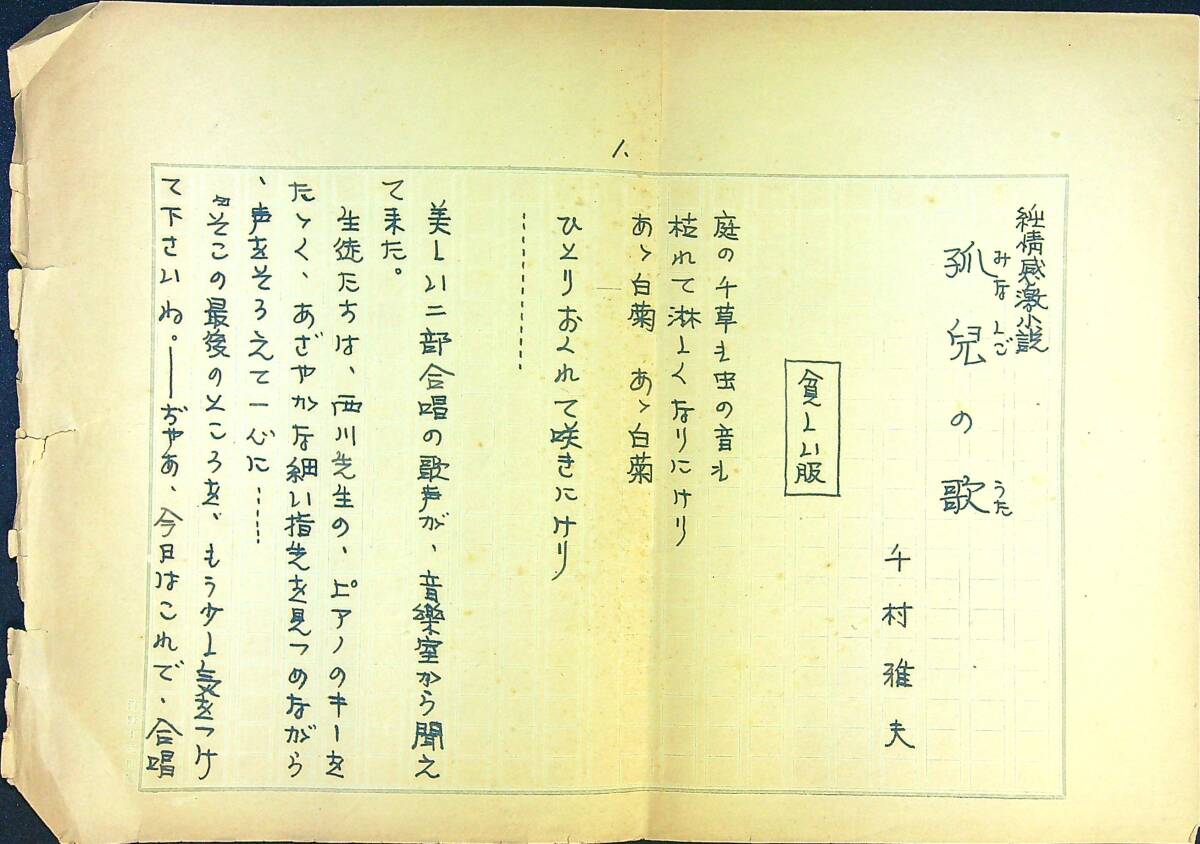 1.
純情感激小説
孤兒の歌
みなしご
うた
千村雅夫
貧しい服
庭の千草も虫の音も
枯れて淋しくなりにけり
あゝ白菊 あゝ白菊
ひとりおくれて咲きにけり
………
美しい二部合唱の歌声が、音樂室から聞え
て来た。
生徒たちは、西川先生の、ピアノのキーを
たゝく、あざやかな細い指先を見つめながら
、声をそろえて一心に……
〝そこの最後のところを、もう少し気をつけ
て下さいね。――ぢやあ、今日はこれで、合唱